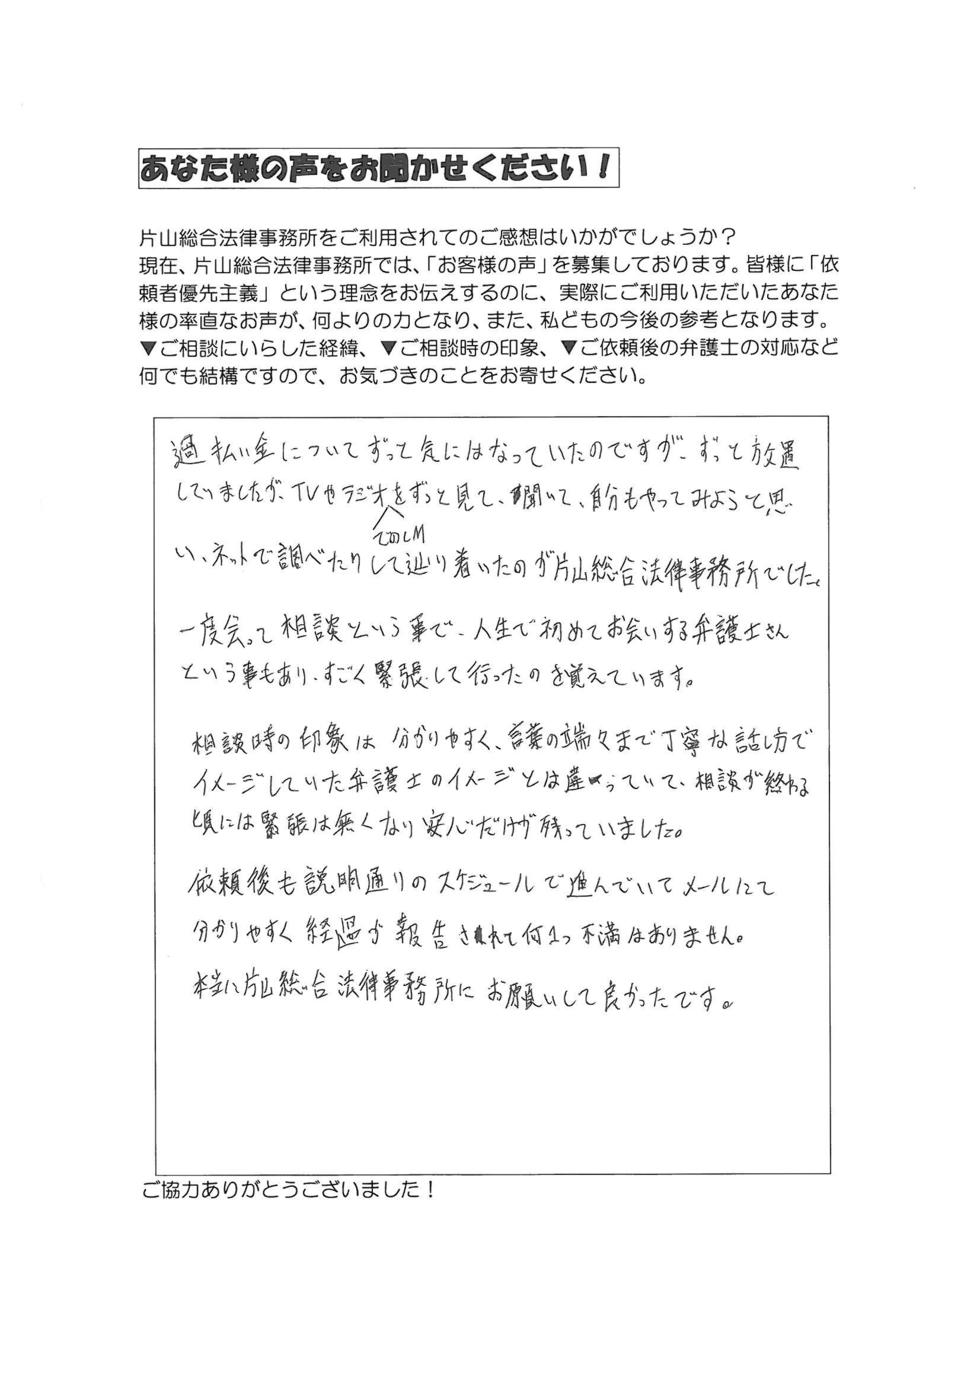 あなた様の声をお聞かせください！
片山総合法律事務所をご利用されてのご感想はいかがでしょうか？
現在、片山総合法律事務所では、「お客様の声」を募集しております。皆様に「依
頼者優先主義」という理念をお伝えするのに、実際にご利用いただいたあなた
様の率直なお声が、何よりの力となり、また、私どもの今後の参考となります。
▼ご相談にいらした経緯、▼ご相談時の印象、▼ご依頼後の弁護士の対応など
何でも結構ですので、お気づきのことをお寄せください。
過払い金についてずっと気にはなっていたのですが、ずっと放置
していましたが、TVやラジオをずっと見て、聞いて、自分もやってみようと思
でのCM
い、ネットで調べたりして辿り着いたのが片山総合法律事務所でした。
一度会って相談という事で、人生で初めてお会いする弁護士さん
という事もあり、すごく緊張して行ったのを覚えています。
相談時の印象は分かりやすく、言葉の端々まで丁寧な話し方で
イメージしていた弁護士のイメージとは違っていて、相談が終わる
頃には緊張は無くなり安心だけが残っていました。
依頼後も説明通りのスケジュールで進んでいてメールにて
分かりやすく経過が報告されて何1つ不満はありません。
本当に片山総合法律事務所にお願いして良かったです。
ご協力ありがとうございました！